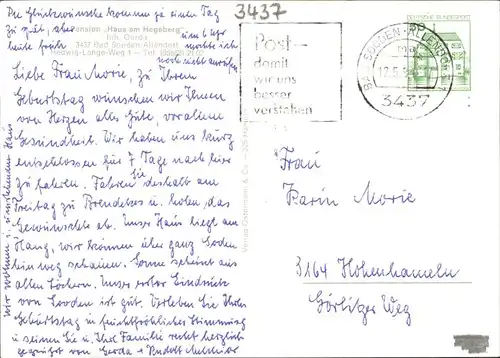 Die Glückwünsche kommen ja einen Tag
zu spät, aber um 6 Uhr
heute früh mochte ich
noch nicht anrufen
Pension „Haus am Hegeberg"
3437 Bad Sooden-Allendorf
Hedwig-Lange-Weg 1 - Tel.
Liebe Frau Morie, zu Ihrem
Geburtstag wünschen wir Ihnen
von Herzen alles Gute, vor allem
Gesundheit. Wir haben uns kurz
entschlossen für 7 Tage nach hier
zu fahren. Fahren Sie deshalb am
Freitag zu Brendebes u. holen das
Gewünschte ab. Unser Haus liegt am
Hang, wir können über ganz Sooden
hinweg schauen. Sonne scheint aus
allen Löchern. Unser erster Eindruck
von Sooden ist gut. Verleben Sie Ihren
Geburtstag in feuchtfröhlicher Stimmung
u. seien Sie u. Ihre Familie recht herzlich
gegrüßt von Gerda + Rudolf
wir wohnen i.
3437
Post -
damit
wir uns
besser
verstehen
BAD SOODEN-ALLENDORF 1
3437
DEUTSCHE BUNDESPOST
Frau
Karin Morie
3164 Hohenhameln
Görlitzer Weg